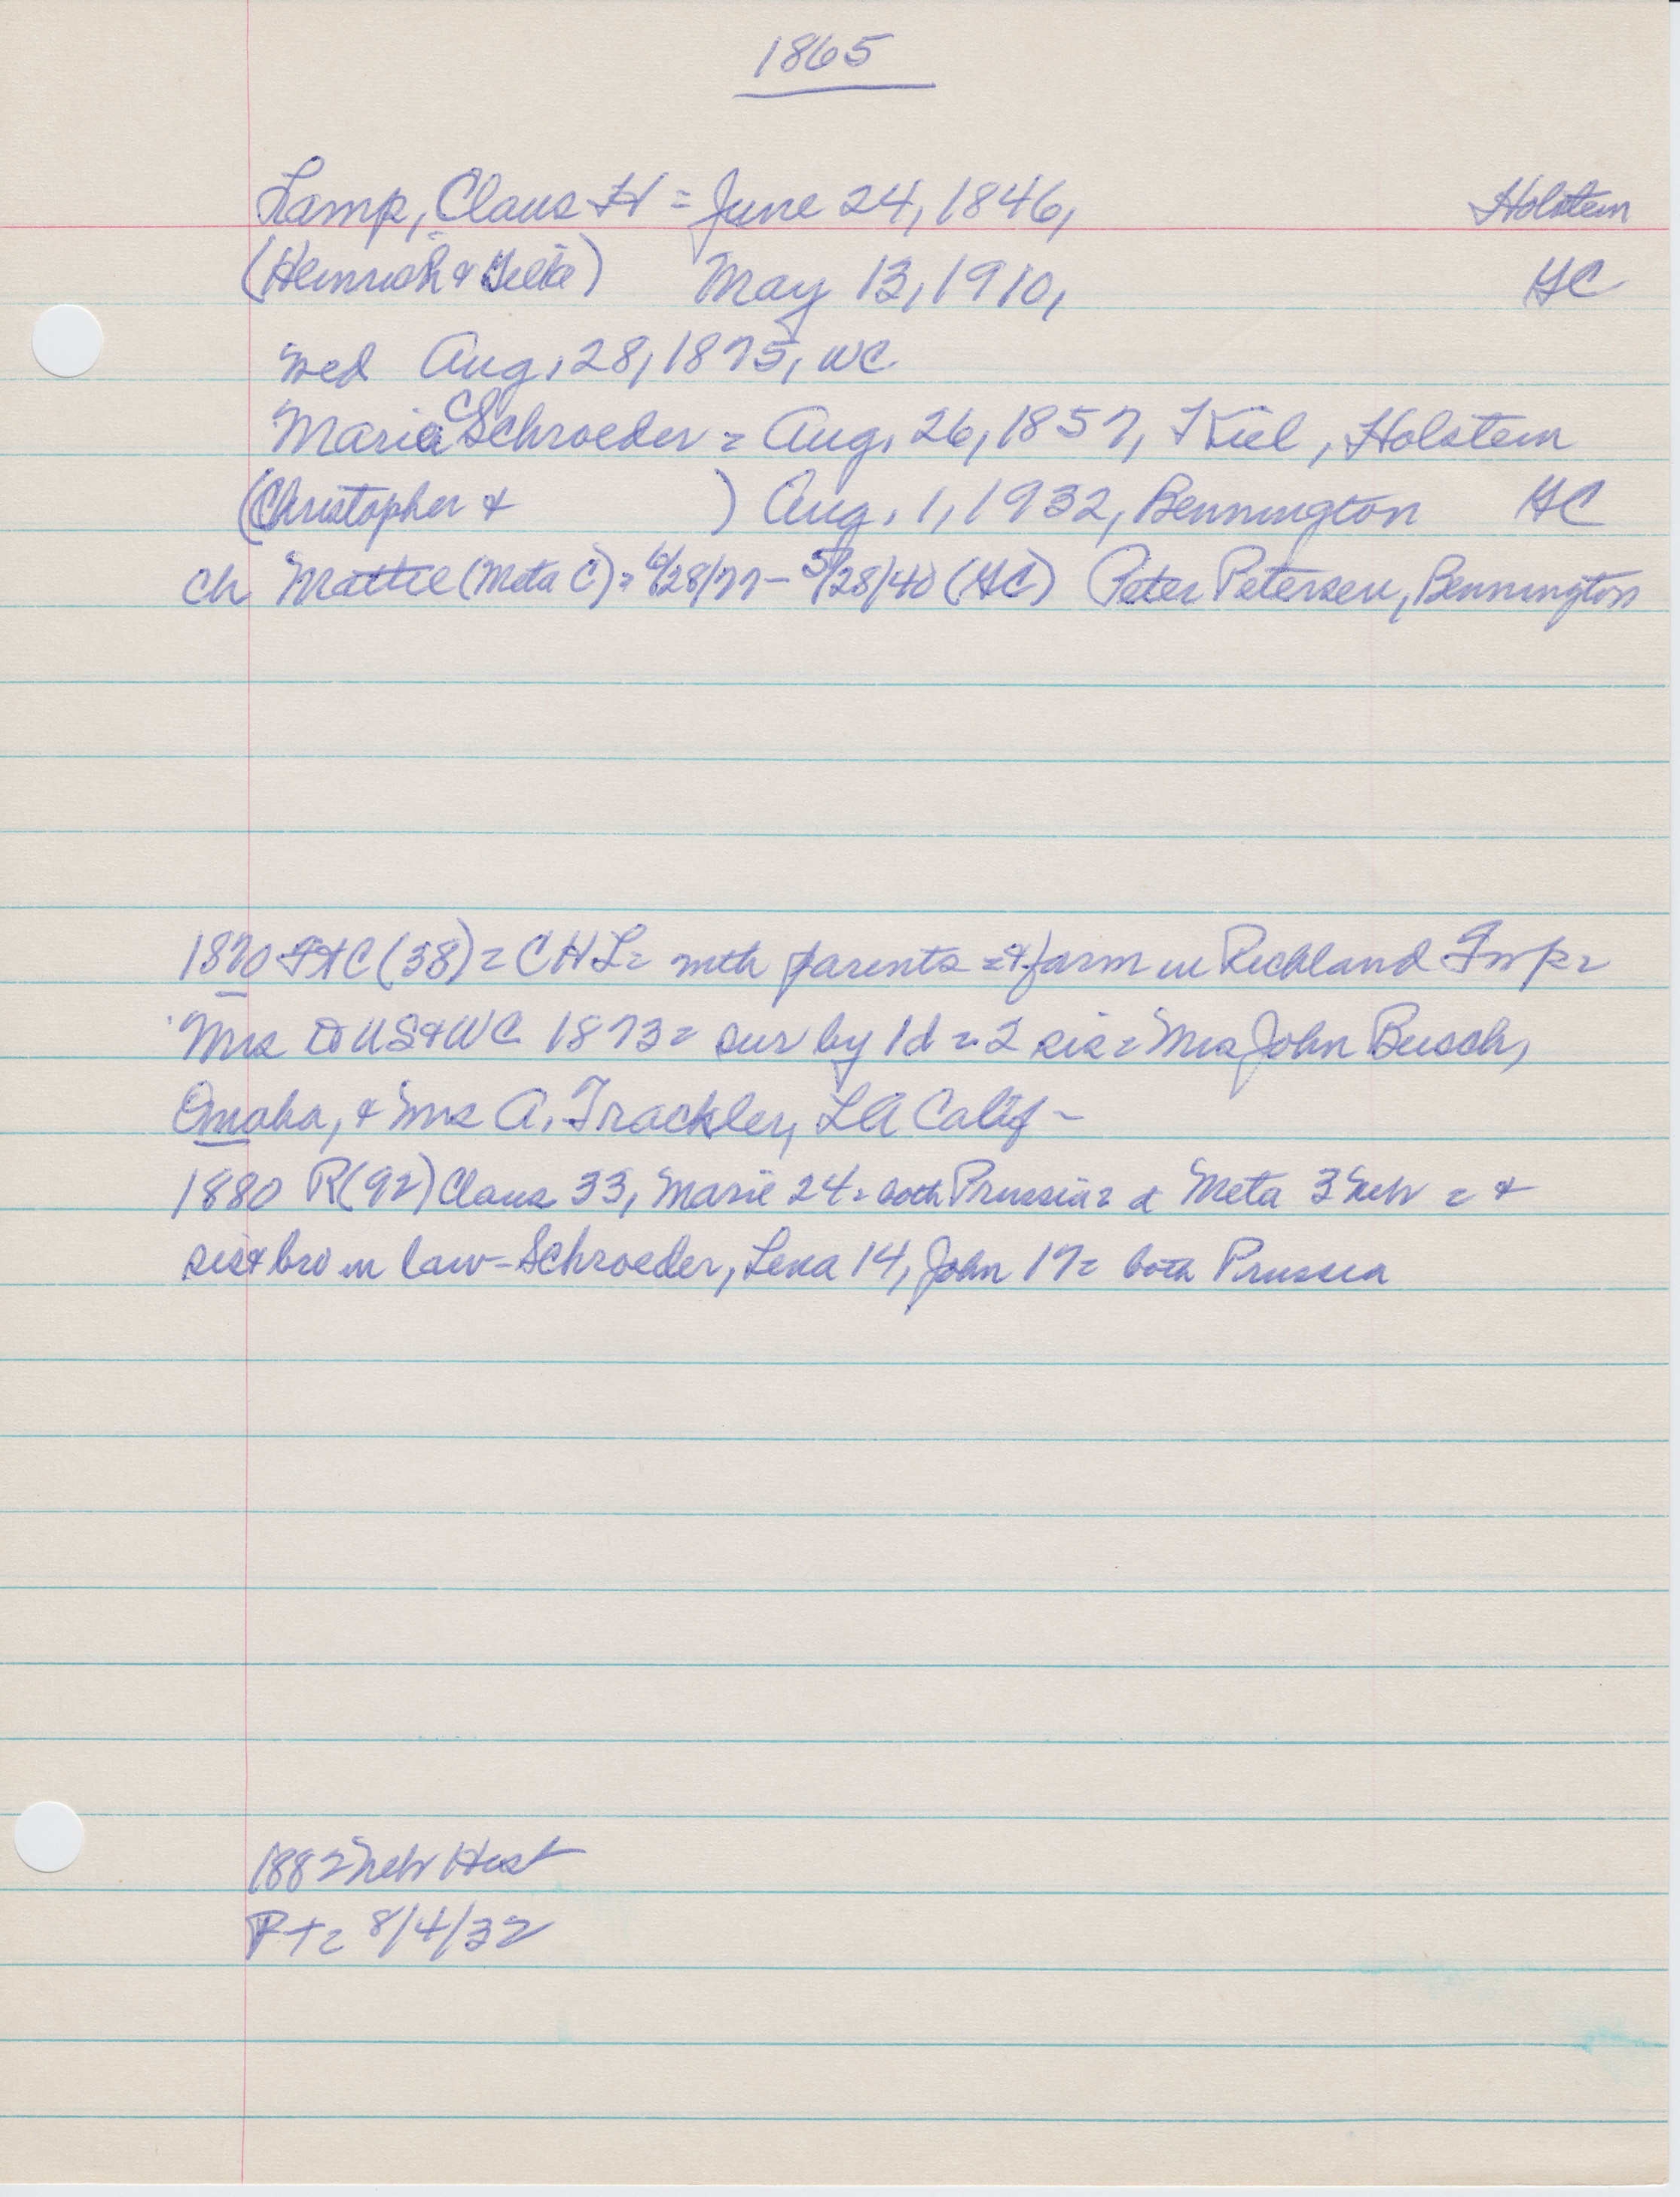 1865
Lamp, Claus H = June 24, 1846, Holstein
(Heinrich & ) May 13, 1910, GC
wed Aug, 28, 1875, WC
Maria C Schroeder = Aug, 26, 1857, Kiel, Holstein
(Christopher & ) Aug, 1, 1932, Bennington GC
ch Mattie (Meta C) = 6/28/77 - 5/28/40 (GC) Peter Petersen, Bennington
1870 (38) = CHL = with parents = & farm in Richland Twp =
Mrs to US & WC 1873 = sur by 1 d = 2 sis = Mrs John Busch,
Omaha, & Mrs A. Trackler, LA Calif -
1880 R(92) Claus 33, Marie 24 = both Prussia = d Meta 3 Neb = &
sis & bro in law - Schroeder, Lena 14, John 17 = both Prussia
1882 Neb Hist
Pt = 8/4/32